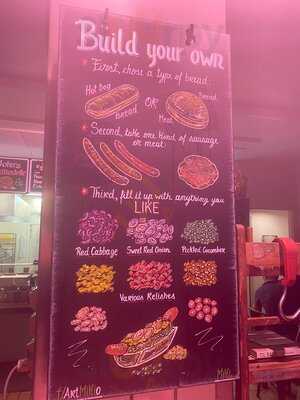 Build your own
First, chose a type of bread
Hot Dog
bread
OR
Bread
Meat
Second, take one kind of sausage
or meat
Third, fill it up with anything you
LIKE
Red Cabbage
Sweet Red Onion
Pickled Cucumber
Various Relishes